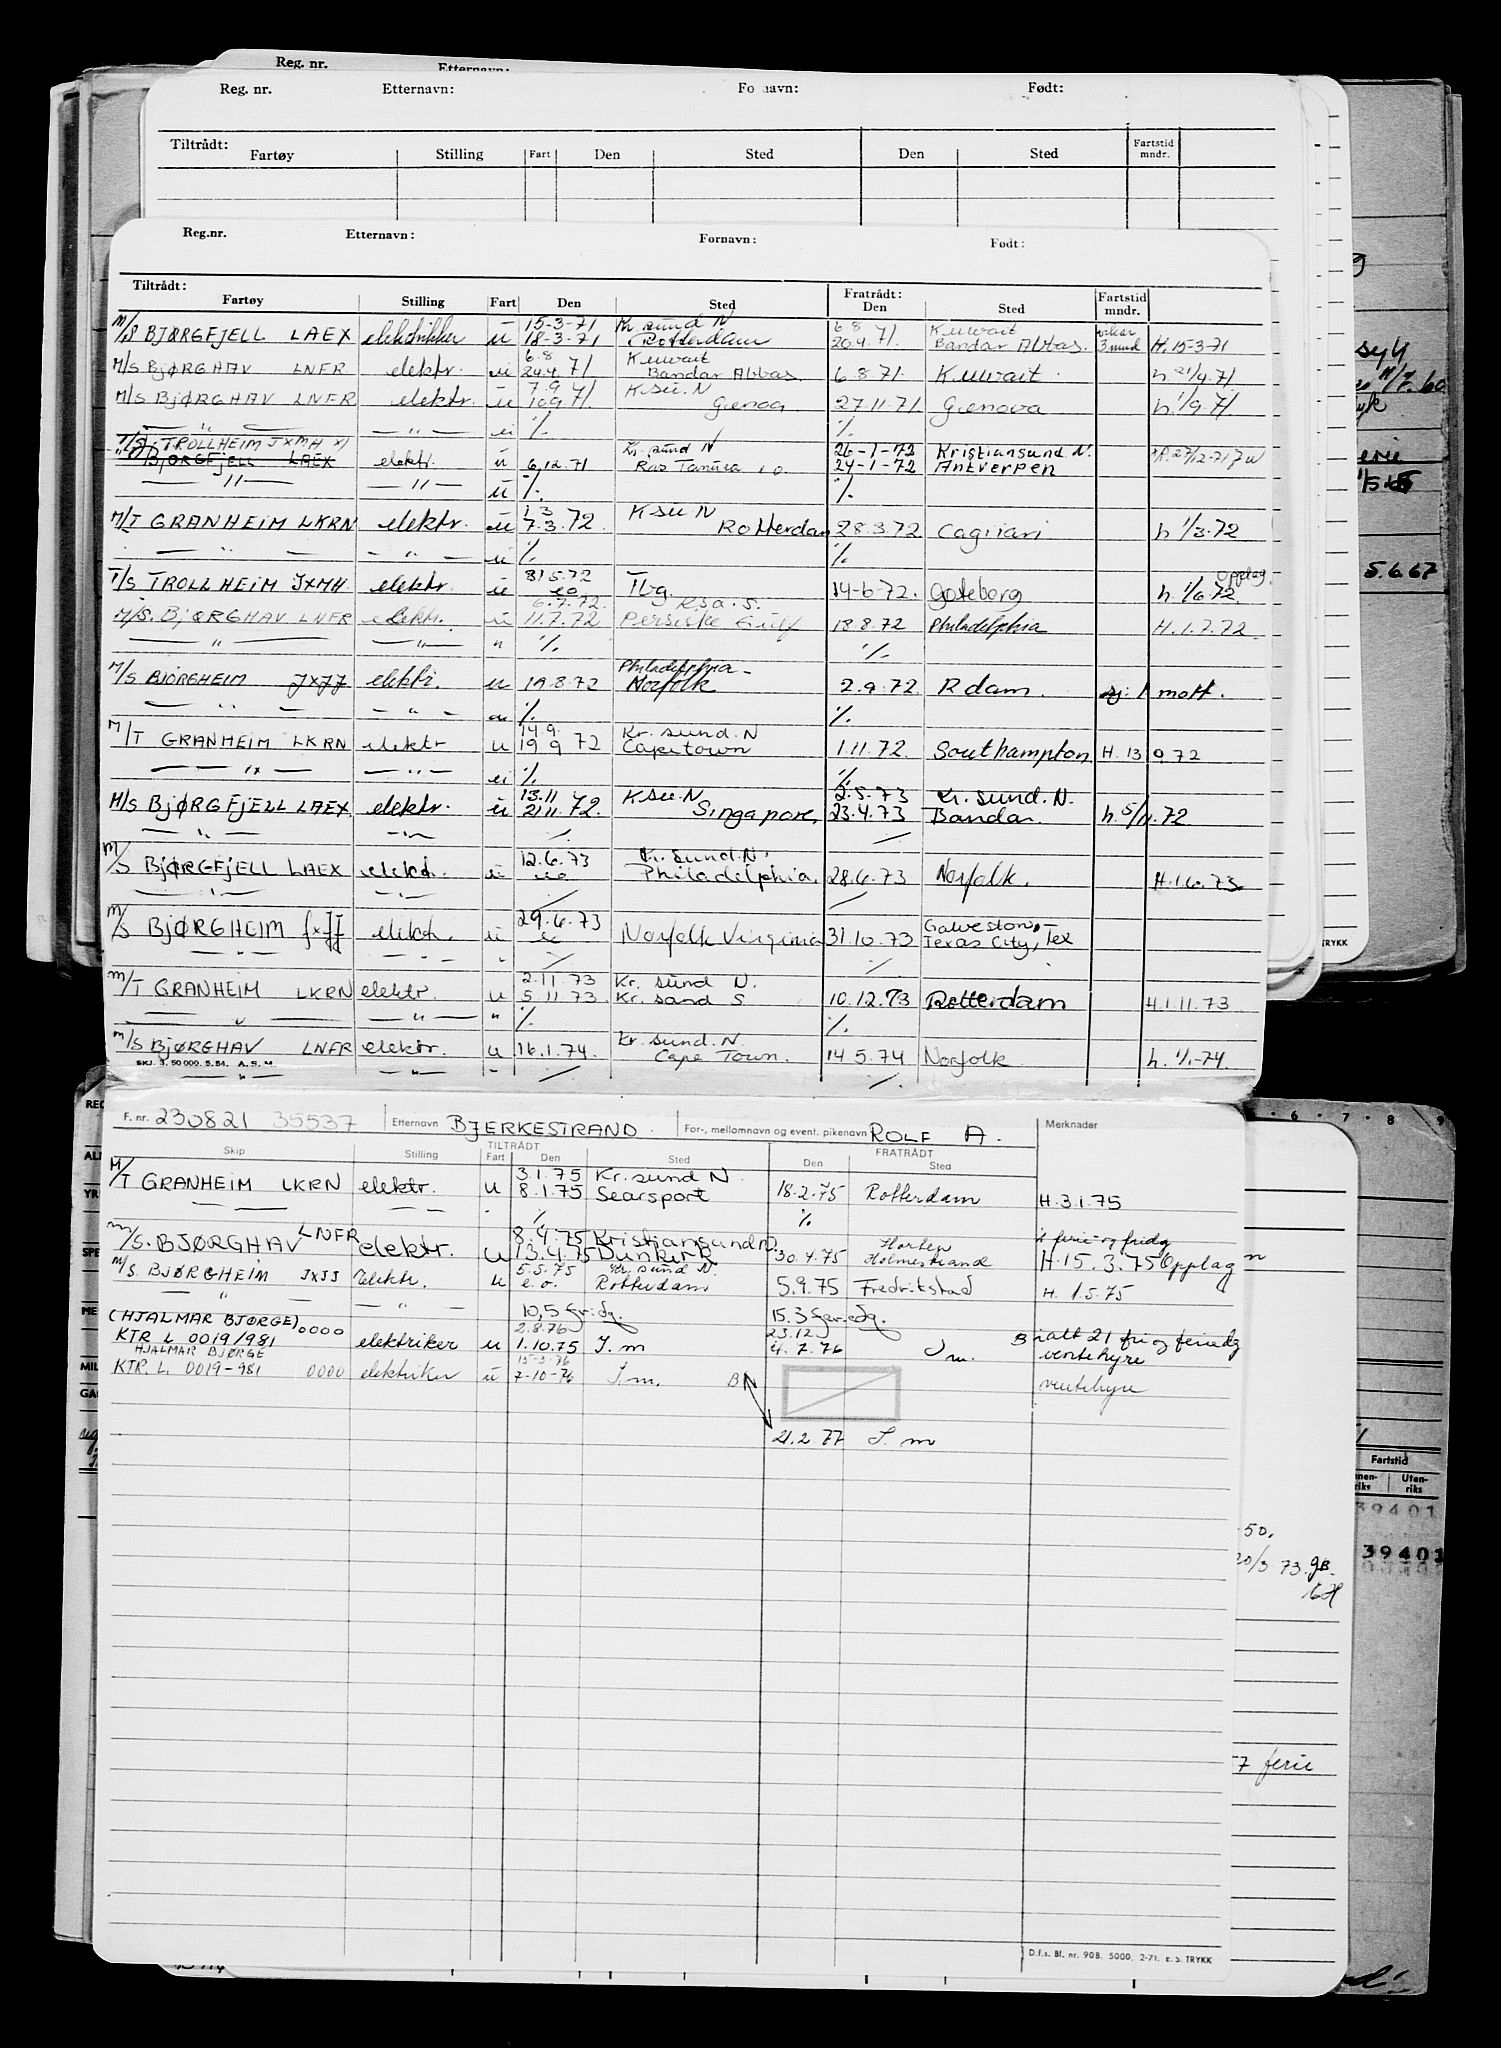 Reg. nr. Etternavn:
Reg. nr. Etternavn: Fornavn: Født:
Tiltrådt:
Fartøy Stilling Fart Den Sted Den Sted Fartstid mndr.
Reg.nr. Etternavn: Fornavn: Født:
Tiltrådt: Fratrådt:
Fartøy Stilling Fart Den Sted Den Sted Fartstid mndr.
15-3-71 Kr. sund N 6.8 Kuwait
M/S BJØRGFJELL LAEX elektrikker u 18-3-71 Rotterdam 20.4.71. Bandar Abbas. 3 mnd H. 15-3-71
6.8 Kuwait
M/S BJØRGHAV LNFR elektr. u 24.4.71 Bandar Abbas 6.8.71. Kuwait. h. 21/4.71.
7.9 K.su.N
M/S BJØRGHAV LNFR elektr. u 10.9.71. Genoa 27.11.71 Genova h. 1/9.71
— " — — " — u % %
T/S TROLLHEIM JXMH x) Kr. sund N 26-1-72 Kristiansund N.
BJØRGFJELL LAEX elektr. u 6.12.71 Ras Tanura 24-1-72 Antverpen
— " — — " — u % %
1.3 K.su.N
M/T GRANHEIM LKRN elektr. u 7.3.72 Rotterdam 28.3.72 Cagliari h 1/3.72
— " — — " — u % %
Opplag
T/S TROLLHEIM JXMH. elektr. u 31.5.72 Tbg. 14-6-72. Gøteborg h. 1/6.72.
6.7.72. K.sa.S.
M/S. BJØRGHAV LNFR elektr. u 11.7.72 Persiske Gulf 18.8.72 Philadelphia H.1.7.72
— " — — " — " % %
Philadelphia-
M/S BJØRGHEIM JXJJ elektr. u 19.8.72 Norfolk 2.9.72 R.dam. mott.
— " — — " — % %
14.9. Kr. sund. N
M/T GRANHEIM LKRN elektr u 19.9.72 Capetown 1.11.72. Southampton H. 13 9 72
— " — — " — u % %
13.11 K.su.N 2.5.73 Kr. sund. N.
M/S BJØRGFJELL LAEX. elektr. u 21.11.72. Singapore. 23.4.73 Bandar. h. 5/11.72
— " — — " —
12.6.73 Kr. sund. N.
M/S BJØRGFJELL LAEX elektr. u Philadelphia. 28.6.73 Norfolk. H.1.6.73
— " — — " —
29.6.73 Galveston,
M/S BJØRGHEIM JXJJ elektr. u Norfolk Virginia 31.10.73 Texas City, Tex
— " — — " — "
2.11.73 Kr. sund N.
M/T GRANHEIM LKRN elektr. u 5.11.73 Kr. sand S 10.12.73 Rotterdam H.1.11.73
— " — — " — " % %
Kr. sund. N.
M/S BJØRGHAV LNFR elektr. u 16.1.74. Cape Town. 14.5.74 Norfolk h. 1/1-74.
SKJ. 3. 50 000. 5.54. A. S. M.
— " — — " —
F. nr. 230821 35537 Etternavn BJERKESTRAND. For-, mellomnavn og event. pikenavn ROLF A. Merknader
TILTRÅDT FRATRÅDT
Skip Stilling Fart Den Sted Den Sted
3.1.75 Kr. sund N.
M/T GRANHEIM LKRN elektr. u 8.1.75 Searsport 18.2.75 Rotterdam H. 3.1.75
% %
8.4.75 Kristiansund N. Horten ferie og fridg
M/S. BJØRGHAV LNFR elektr. u 13.4.75 Dunkirk 30.4.75 Holmestrand H. 15.3.75 Opplag
5.5.75 Kr. sund N.
M/S. BJØRGHEIM JXJJ elektr. u e.o. Rotterdam 5.9.75 Fredrikstad H. 1.5.75
— " — — " —
10,5 fridg. 15.3 feriedg.
(HJALMAR BJØRGE) 2.8.76 23.12
KTR L 0019/981 0000 elektriker u 1.10.75 I. m 4.7.76 I m. B ialt 21 fri og feriedg ventehyre
HJALMAR BJØRGE 15-3-76
KTR. L. 0019-981 0000 elektriker u 7-10-76 I. m. B ventehyre
21.2.77 I. m
D.f.s. Bl. nr. 908. 5000. 2-71. E. S. TRYKK
5.6.67
TRYKK
6 · 7 · 8 9
Fartstid
Uten-riks
39401
39401
50.
20/3 73.
57 ferie